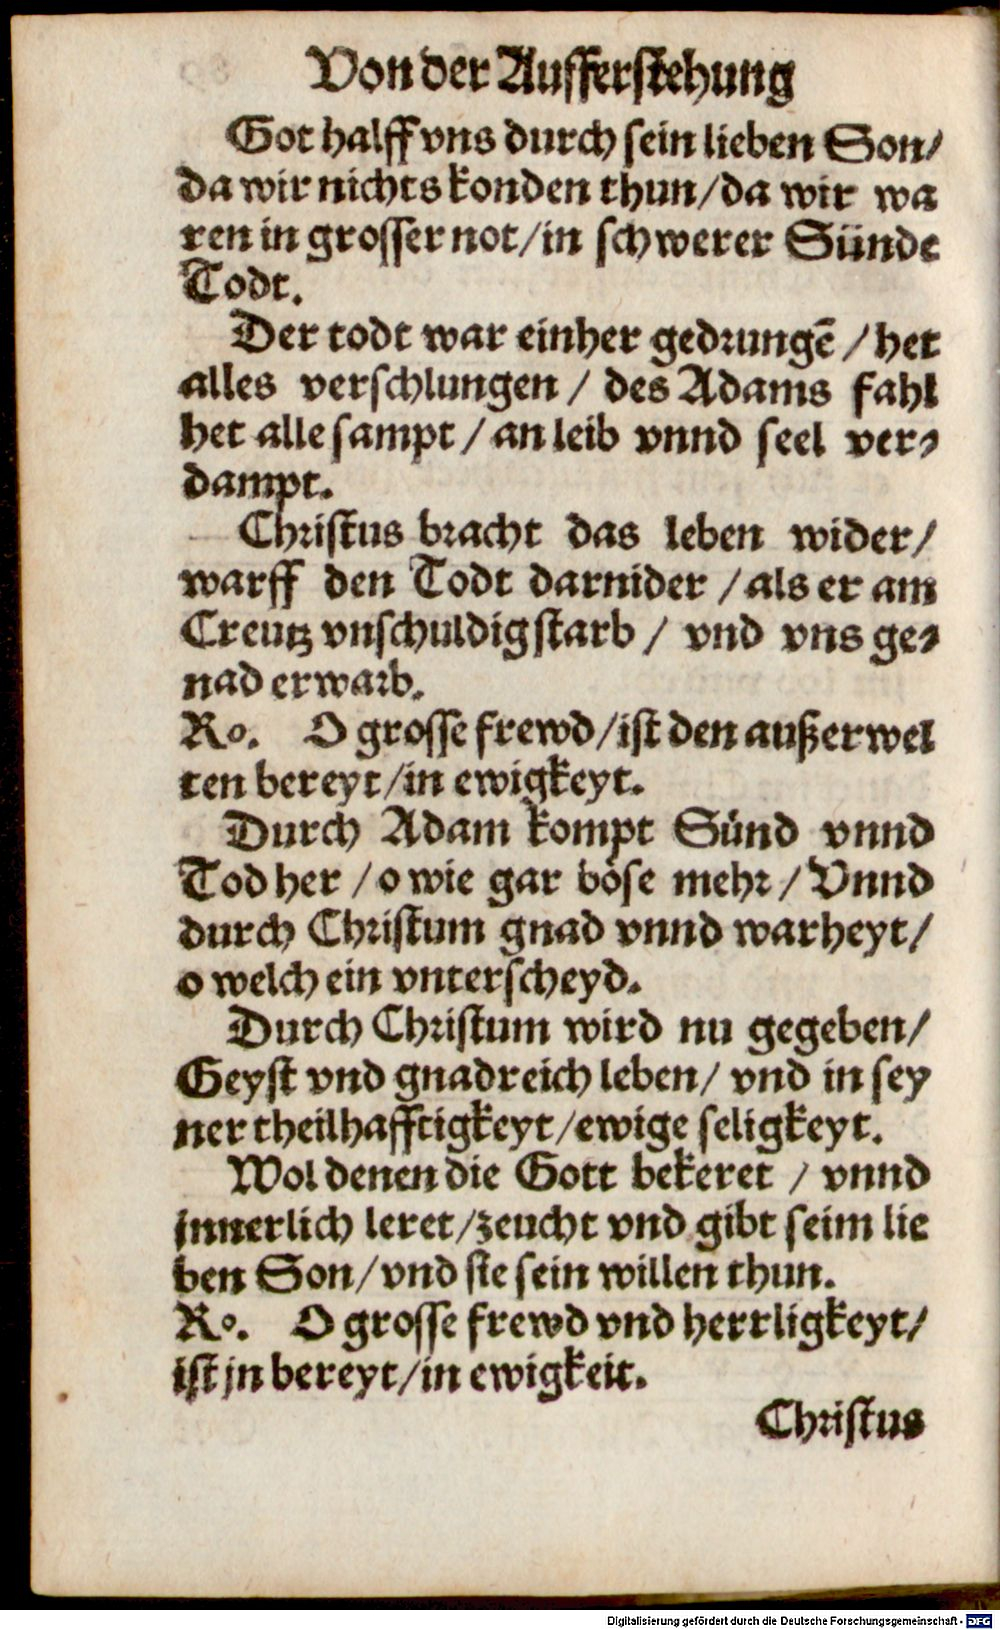 Von der Aufferstehung
Got halff vns durch sein lieben Son/
da wir nichts konden thun/da wir wa
ren in grosser not/in schwerer Sünde
Todt.
Der todt war einher gedrungē/het
alles verschlungen/ des Adams fahl
het alle sampt/ an leib vnnd seel ver⸗
dampt.
Christus bracht das leben wider/
warff den Todt darnider/als er am
Creutz vnschuldig starb/ vnd vns ge⸗
nad erwarb.
Ro. O grosse frewd/ist den außerwel
ten bereyt/in ewigkeyt.
Durch Adam kompt Sünd vnnd
Tod her/o wie gar böse mehr/Vnnd
durch Christum gnad vnnd warheyt/
o welch ein vnterscheyd.
Durch Christum wird nu gegeben/
Geyst vnd gnadreich leben/ vnd in sey
ner theilhafftigkeyt/ewige seligkeyt.
Wol denen die Gott bekeret/ vnnd
jnnerlich leret/zeucht vnd gibt seim lie
ben Son/vnd sie sein willen thun.
Ro. O grosse frewd vnd herrligkeyt/
ist jn bereyt/in ewigkeit.
Christus
Digitalisierung gefördert durch die Deutsche Forschungsgemeinschaft - DFG